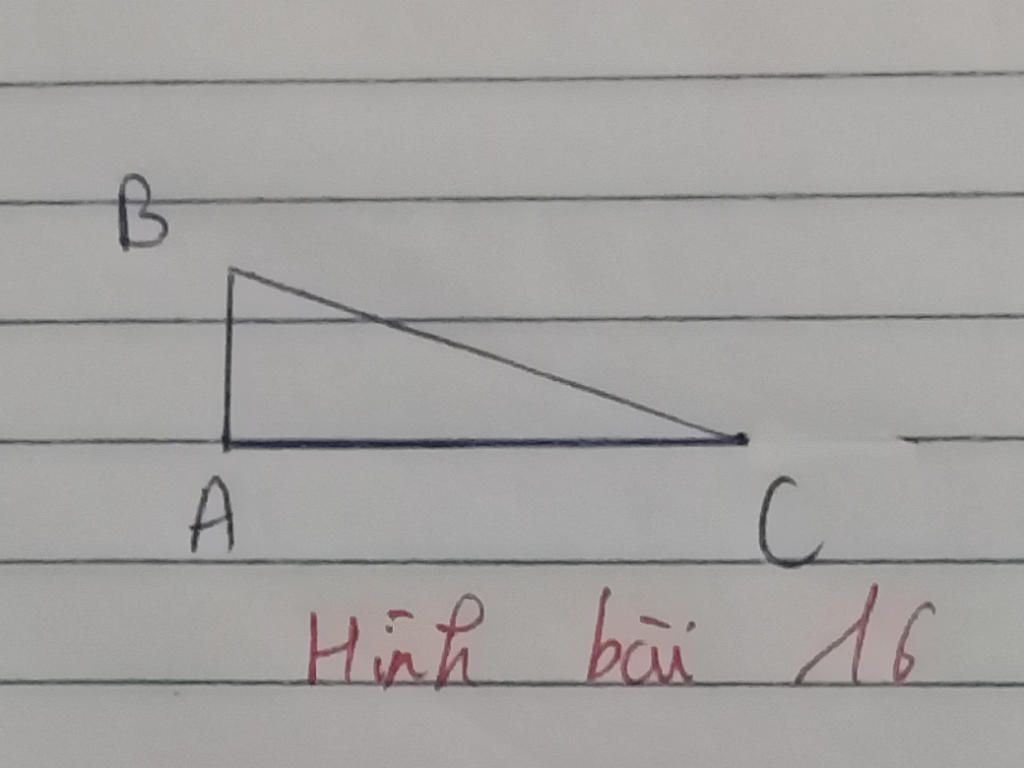 B
A C
Hình bài 16